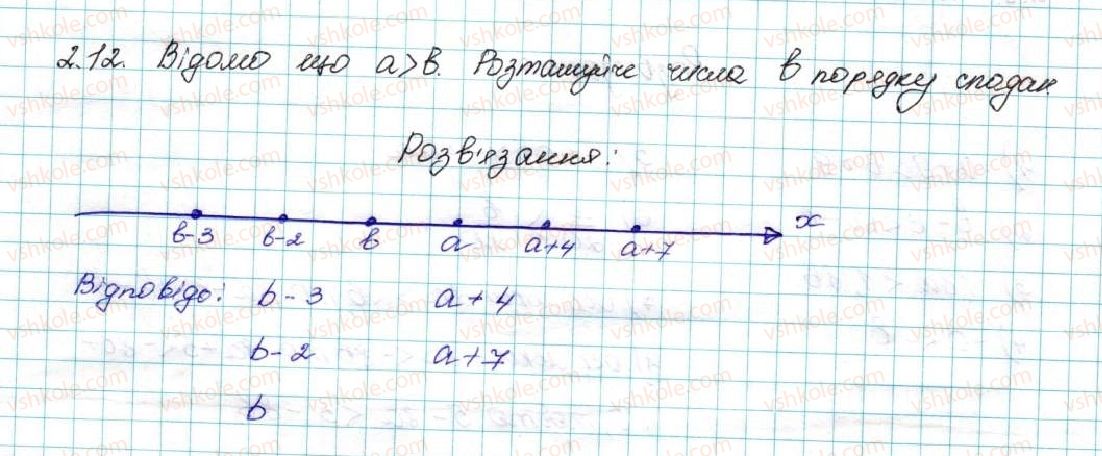 2.12. Відомо що a>b. Розташуйте числа в порядку спадан
Розв'язання:
x
b-3 b-2 b a a+4 a+7
Відповідь: b-3 a+4
b-2 a+7
b